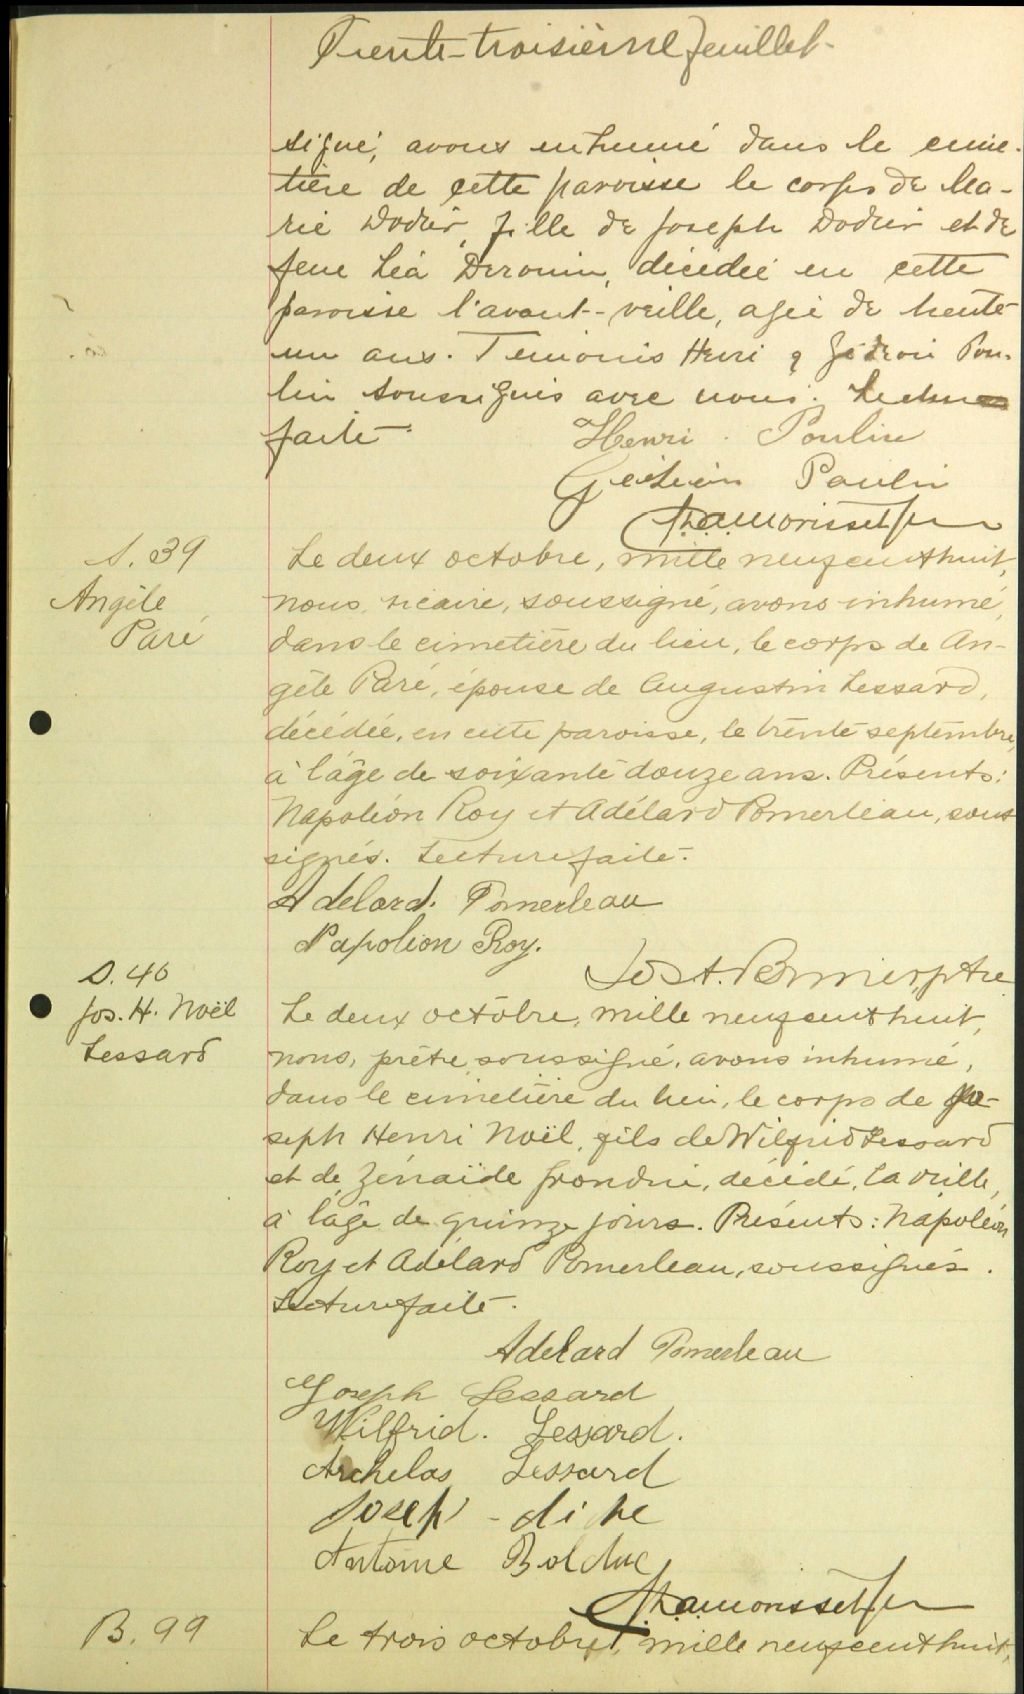 Trente-troisième feuillet-
signé, avons inhumé dans le cime-
tière de cette paroisse le corps de Ma-
rie Dodier, fille de Joseph Dodier et de
feue Léa Drouin, décédée en cette
paroisse l'avant-veille, agée de trente
un ans. Témoins Henri & Gédéon Pou-
lin soussignés avec nous. Lecture
faite. Henri Poulin
Gédéon Poulin
S. 39
Angèle
Paré
Le deux octobre, mille neuf cent huit,
nous, vicaire, soussigné, avons inhumé,
dans le cimetière du lieu, le corps de An-
gèle Paré, épouse de Augustin Lessard,
décédée, en cette paroisse, le trente septembre,
à l'âge de soixante douze ans. Présents:
Napoléon Roy et Adélard Pomerleau, sous
signés. Lecture faite.
Adelard. Pomerleau
Napoleon Roy.
S. 40
Jos. H. Noël
Lessard
Le deux octobre, mille neuf cent huit,
nous, prêtre soussigné, avons inhumé,
dans le cimetière du lieu, le corps de Jo-
seph Henri Noël, fils de Wilfrid Lessard
et de Zénaïde Grondin, décédé, la veille,
à l'âge de quinze jours. Présents: Napoléon
Roy et Adélard Pomerleau, soussignés.
Lecture faite.
Adelard Pomerleau
Joseph Lessard
Wilfrid. Lessard.
Archelas Lessard
Joseph
Antoine Bolduc
B. 99
Le trois octobre, mille neuf cent huit,